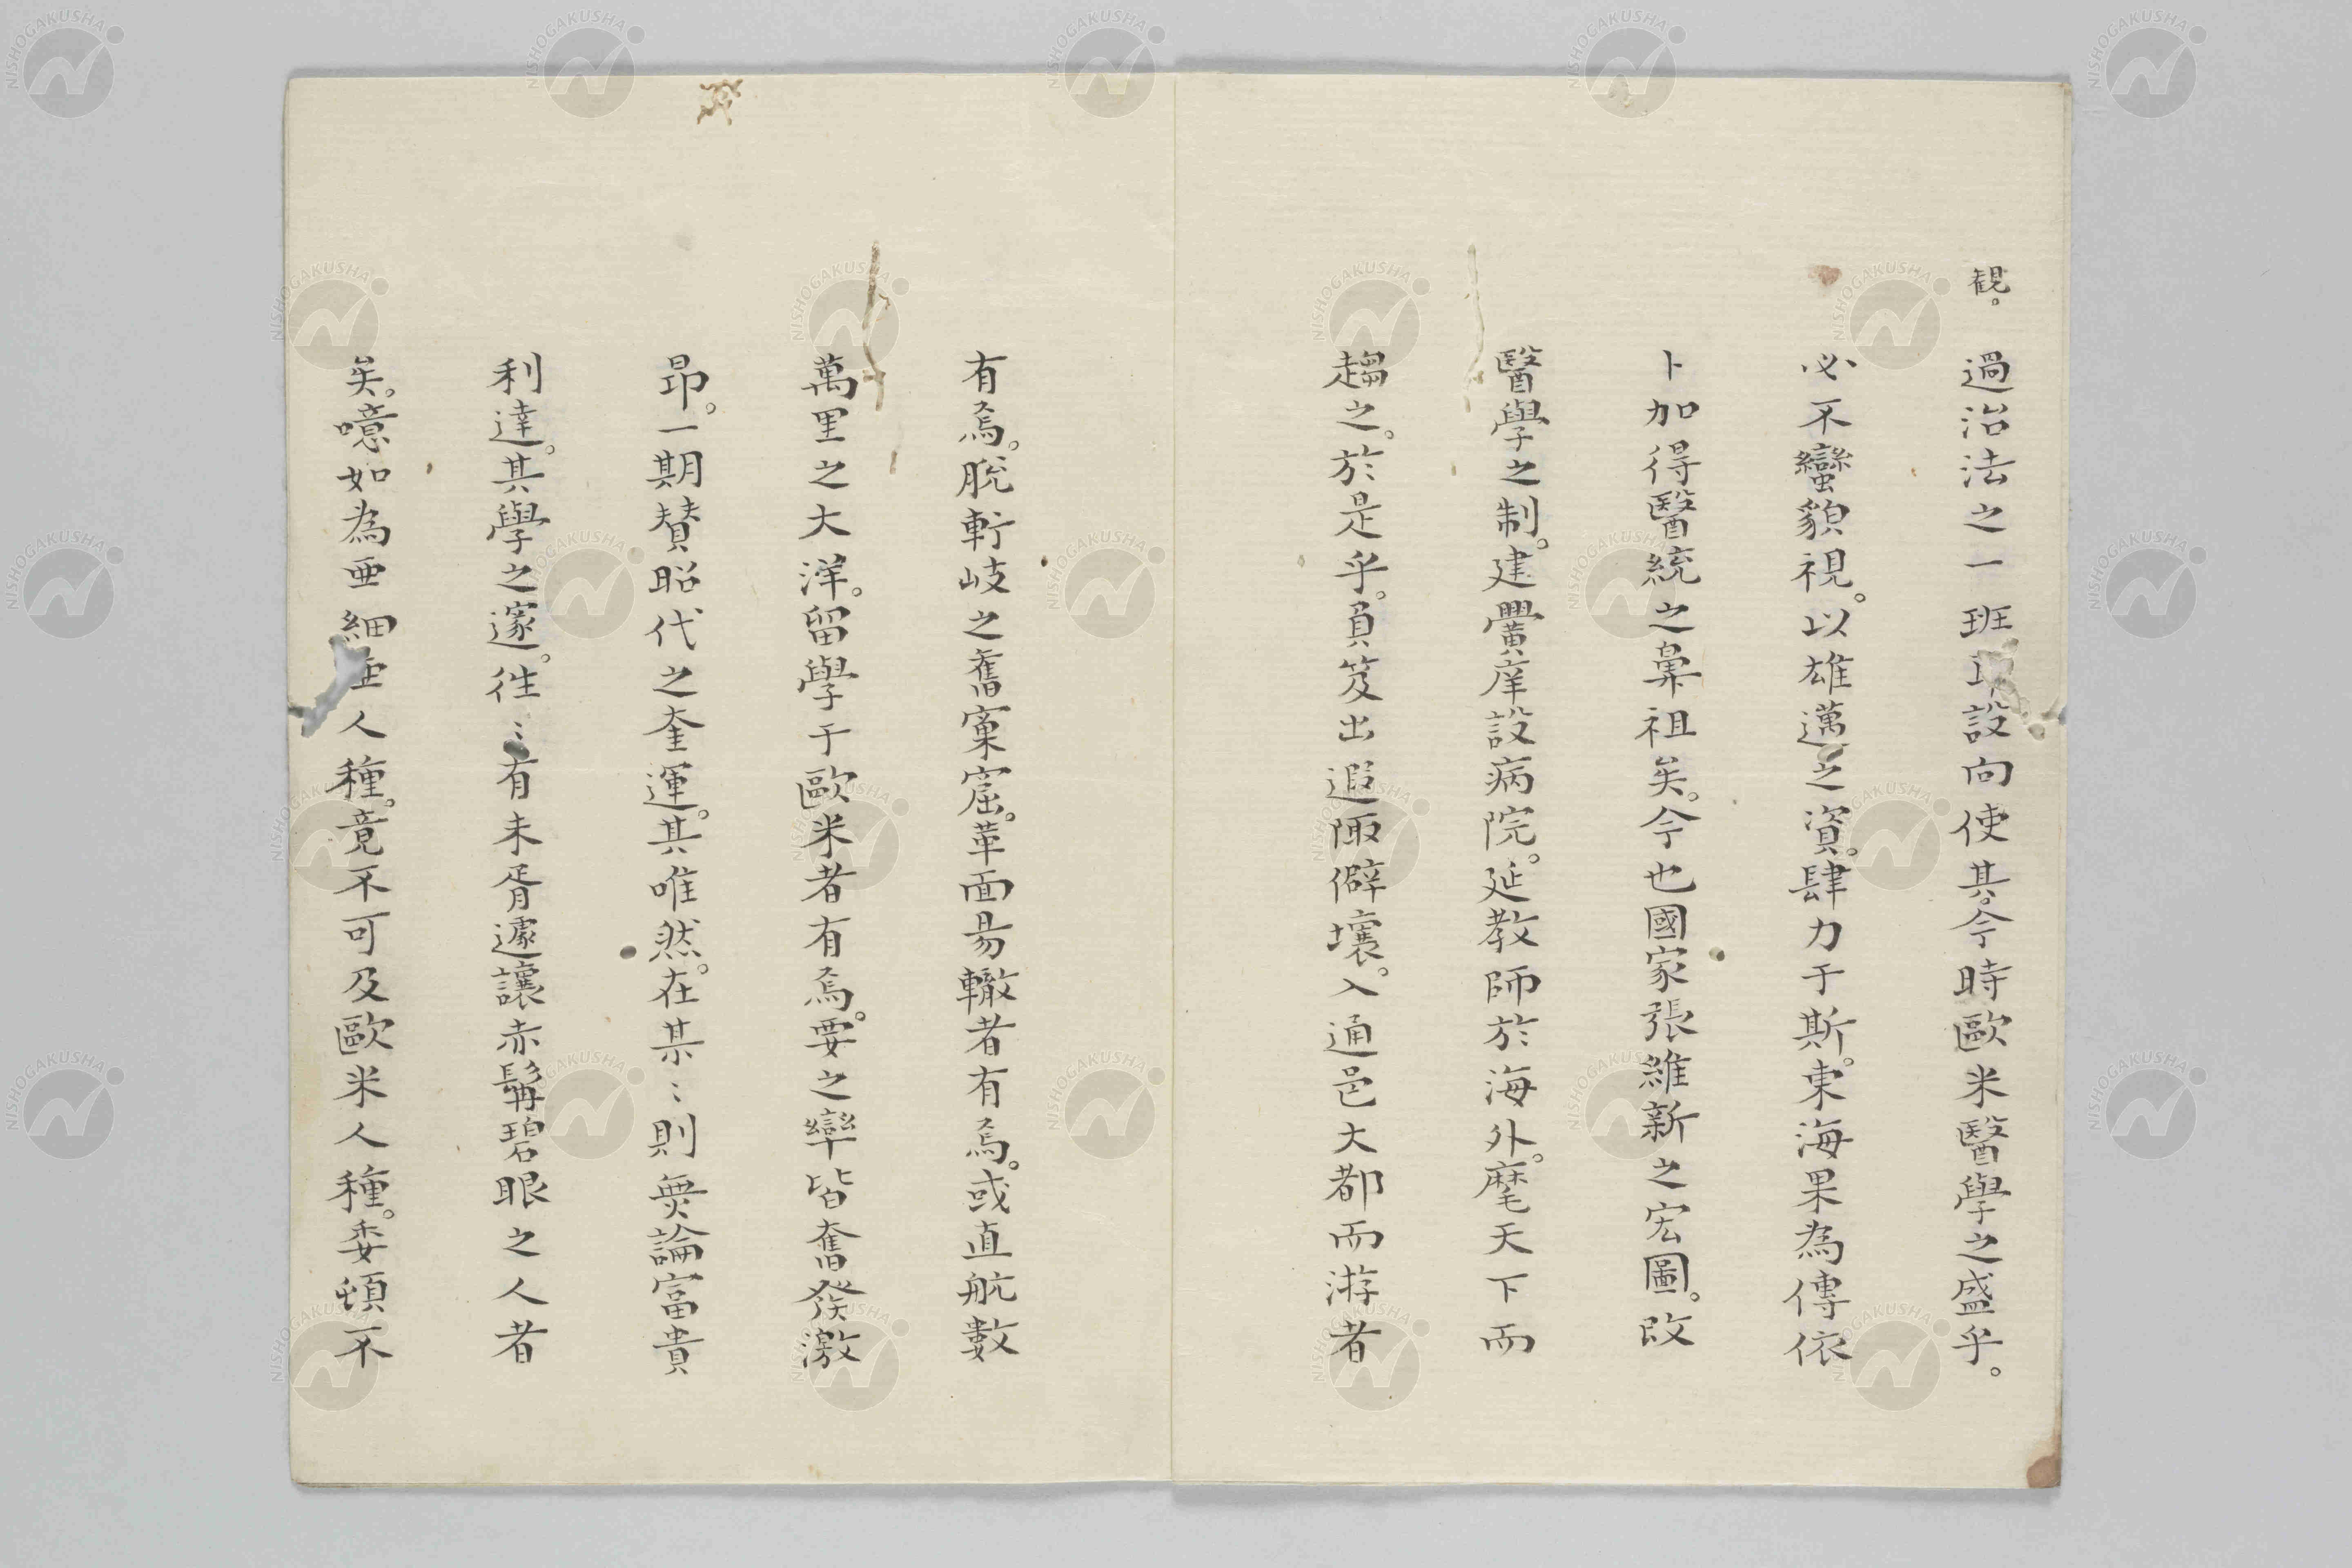 觀。
過治法之一班耳設向使其。今時歐米醫學之盛乎。
必不蠻貌視。以雄邁之資。肆力于斯。東海果為傳依
卜加得醫統之鼻祖矣。今也國家張維新之宏圖。改
醫學之制。建黌庠設病院。延教師於海外。麾天下而
趨之。於是乎。負笈出遐陬僻壤。入通邑大都而游者
有焉。脫軒岐之舊窠窟。革面易轍者有焉。或直航數
萬里之大洋。留學于歐米者有焉。要之率皆奮發激
昂。一期賛昭代之奎運。其唯然。在某〻則無論富貴
利達。其學之邃。往〻有未胥遽讓赤髯碧眼之人者
矣。噫如為亜細亜人種。竟不可及歐米人種。委頓不
NISHOGAKUSHA